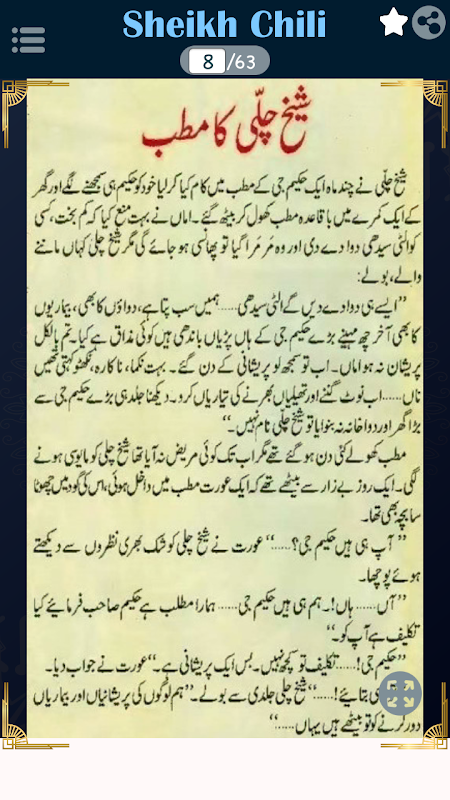 Sheikh Chili
8/63
شیخ چلّی کا مطب
شیخ چلّی نے چند ماہ ایک حکیم جی کے مطب میں کام کیا کر لیا خود کو حکیم ہی سمجھنے لگے اور گھر
کے ایک کمرے میں باقاعدہ مطب کھول کر بیٹھ گئے۔ اماں نے بہت منع کیا کہ کم بخت، کسی
کو الٹی سیدھی دوا دے دی اور وہ مر مرا گیا تو پھانسی ہو جائے گی مگر شیخ چلی کہاں ماننے
والے، بولے:
”ایسے ہی دوا دے دیں گے الٹی سیدھی...... ہمیں سب پتا ہے، دواؤں کا بھی، بیماریوں
کا بھی آخر چھ مہینے بڑے حکیم جی کے ہاں پڑیاں باندھی ہیں کوئی مذاق ہے کیا۔ تم بالکل
پریشان نہ ہو اماں۔ اب تو سمجھ لو پریشانی کے دن گئے۔ بہت نکما، ناکارہ، نکھٹو کہتی تھیں
ناں...... اب نوٹ گننے اور تھیلیاں بھرنے کی تیاریاں کرو۔ دیکھنا جلد ہی بڑے حکیم جی سے
بڑا گھر اور دواخانہ نہ بنوایا تو شیخ چلی نام نہیں۔“
مطب کھولے کئی دن ہو گئے تھے مگر اب تک کوئی مریض نہ آیا تھا شیخ چلی کو مایوسی ہونے
لگی۔ ایک روز بے زار سے بیٹھے تھے کہ ایک عورت مطب میں داخل ہوئی، اس کی گود میں چھوٹا
سا بچہ بھی تھا۔
”آپ ہی ہیں حکیم جی؟......“ عورت نے شیخ چلی کو شک بھری نظروں سے دیکھتے
ہوئے پوچھا۔
”آں...... ہاں!۔ ہم ہی ہیں حکیم جی...... ہمارا مطلب ہے حکیم صاحب فرمائیے کیا
تکلیف ہے آپ کو۔“
”حکیم جی!...... تکلیف تو کچھ نہیں۔ بس ایک پریشانی ہے۔“ عورت نے جواب دیا۔
ہی بتائیے!......“ شیخ چلی جلدی سے بولے۔ ”ہم لوگوں کی پریشانیاں اور بیماریاں
دور کرنے کو تو بیٹھے ہیں یہاں......“